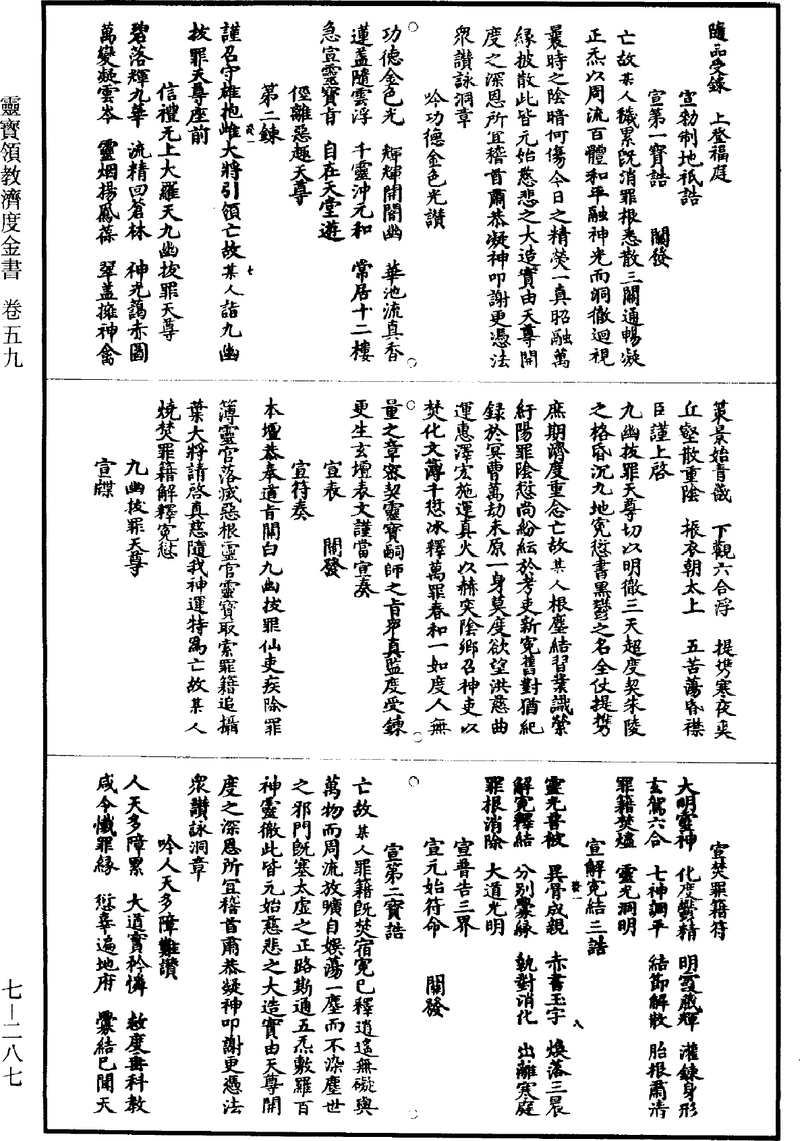 隨品受鍊　上登福庭
宣勑制地祇誥
宣第一寶誥　　關發
亡故某人穢累旣消罪根悉散三關通暢凝
正炁以周流百體和平融神光而洞徹迴視
曩時之陰暗何傷今日之精熒一真昭融萬
緣披散此皆元始慈悲之大造實由天尊開
度之深恩所宜稽首爾恭凝神叩謝更憑法
衆讚詠洞章
吟功德金色光讚
功德金色光　輝輝開闇幽　華池流真香
蓮蓋隨雲浮　千靈沖元和　常居十二樓
急宣靈寶旨　自在天堂遊
徑離惡趣天尊
第二鍊
謹召守雄抱雌大將引領亡故某人詣九幽
拔罪天尊座前
信禮无上大羅天九幽拔罪天尊
碧落輝九華　流精回蒼林　神光藹赤圓
萬變凝雲岑　靈烟揚鳳葆　翠蓋擁神禽
策景始青㠘　下觀六合浮　提㩗寒夜爽
丘壑散重陰　振衣朝太上　五苦蕩昏襟
臣謹上啓
九幽拔罪天尊切以明徹三天超度契朱陵
之格昏沉九地寃愆書黑鬱之名全仗提㩗
庶期濟度重念亡故某人根塵結習業識縈
紆陽罪陰愆尚紛紜於考吏新寃舊對猶紀
録於冥曹萬劫未原一身莫度欲望洪慈曲
運惠澤宏施運真火以赫突陰鄉召神吏以
焚化文簿千愆冰釋萬罪春和一如度人無
量之章寀契靈寶嗣師之旨丐真監度受鍊
更生玄壇表文謹當宣奏
宣表　　關發
宣符奏
本壇恭奉道旨關白九幽拔罪仙吏疾除罪
簿靈官落滅惡根靈官靈寶取索罪籍追攝
葉大將請啓真慈隨我神運特爲亡故某人
燒焚罪籍解釋寃愆
九幽拔罪天尊
宣牒
宣焚罪籍符
大明靈神　化度鬱精　明霞藏輝　灌鍊身形
玄駕六合　七神調平　結節解散　胎根肅清
罪籍焚爐　靈光洞明
宣解寃結三誥
靈光普被　異骨成親　赤書玉字　煥落三晨
解寃釋結　分別釁緣　執對消化　出離寒庭
罪根消除　大道光明
宣普告三界
宣元始符命　　關發
宣第二寶誥
亡故某人罪籍旣焚宿寃已釋逍遙無礙與
萬物而周流放曠自娛蕩一塵而不染塵世
之邪門旣塞太虛之正路斯通五炁敷羅百
神靈徹此皆元始慈悲之大造實由天尊開
度之深恩所宜稽首爾恭凝神叩謝更憑法
衆讚詠洞章
吟人天多障難讚
人天多障累　大道實矜憐　敕度垂科教
咸令懺罪緣　愆辜遍地府　釁結已聞天
靈寶領教濟度金書　卷五九
七—二八七